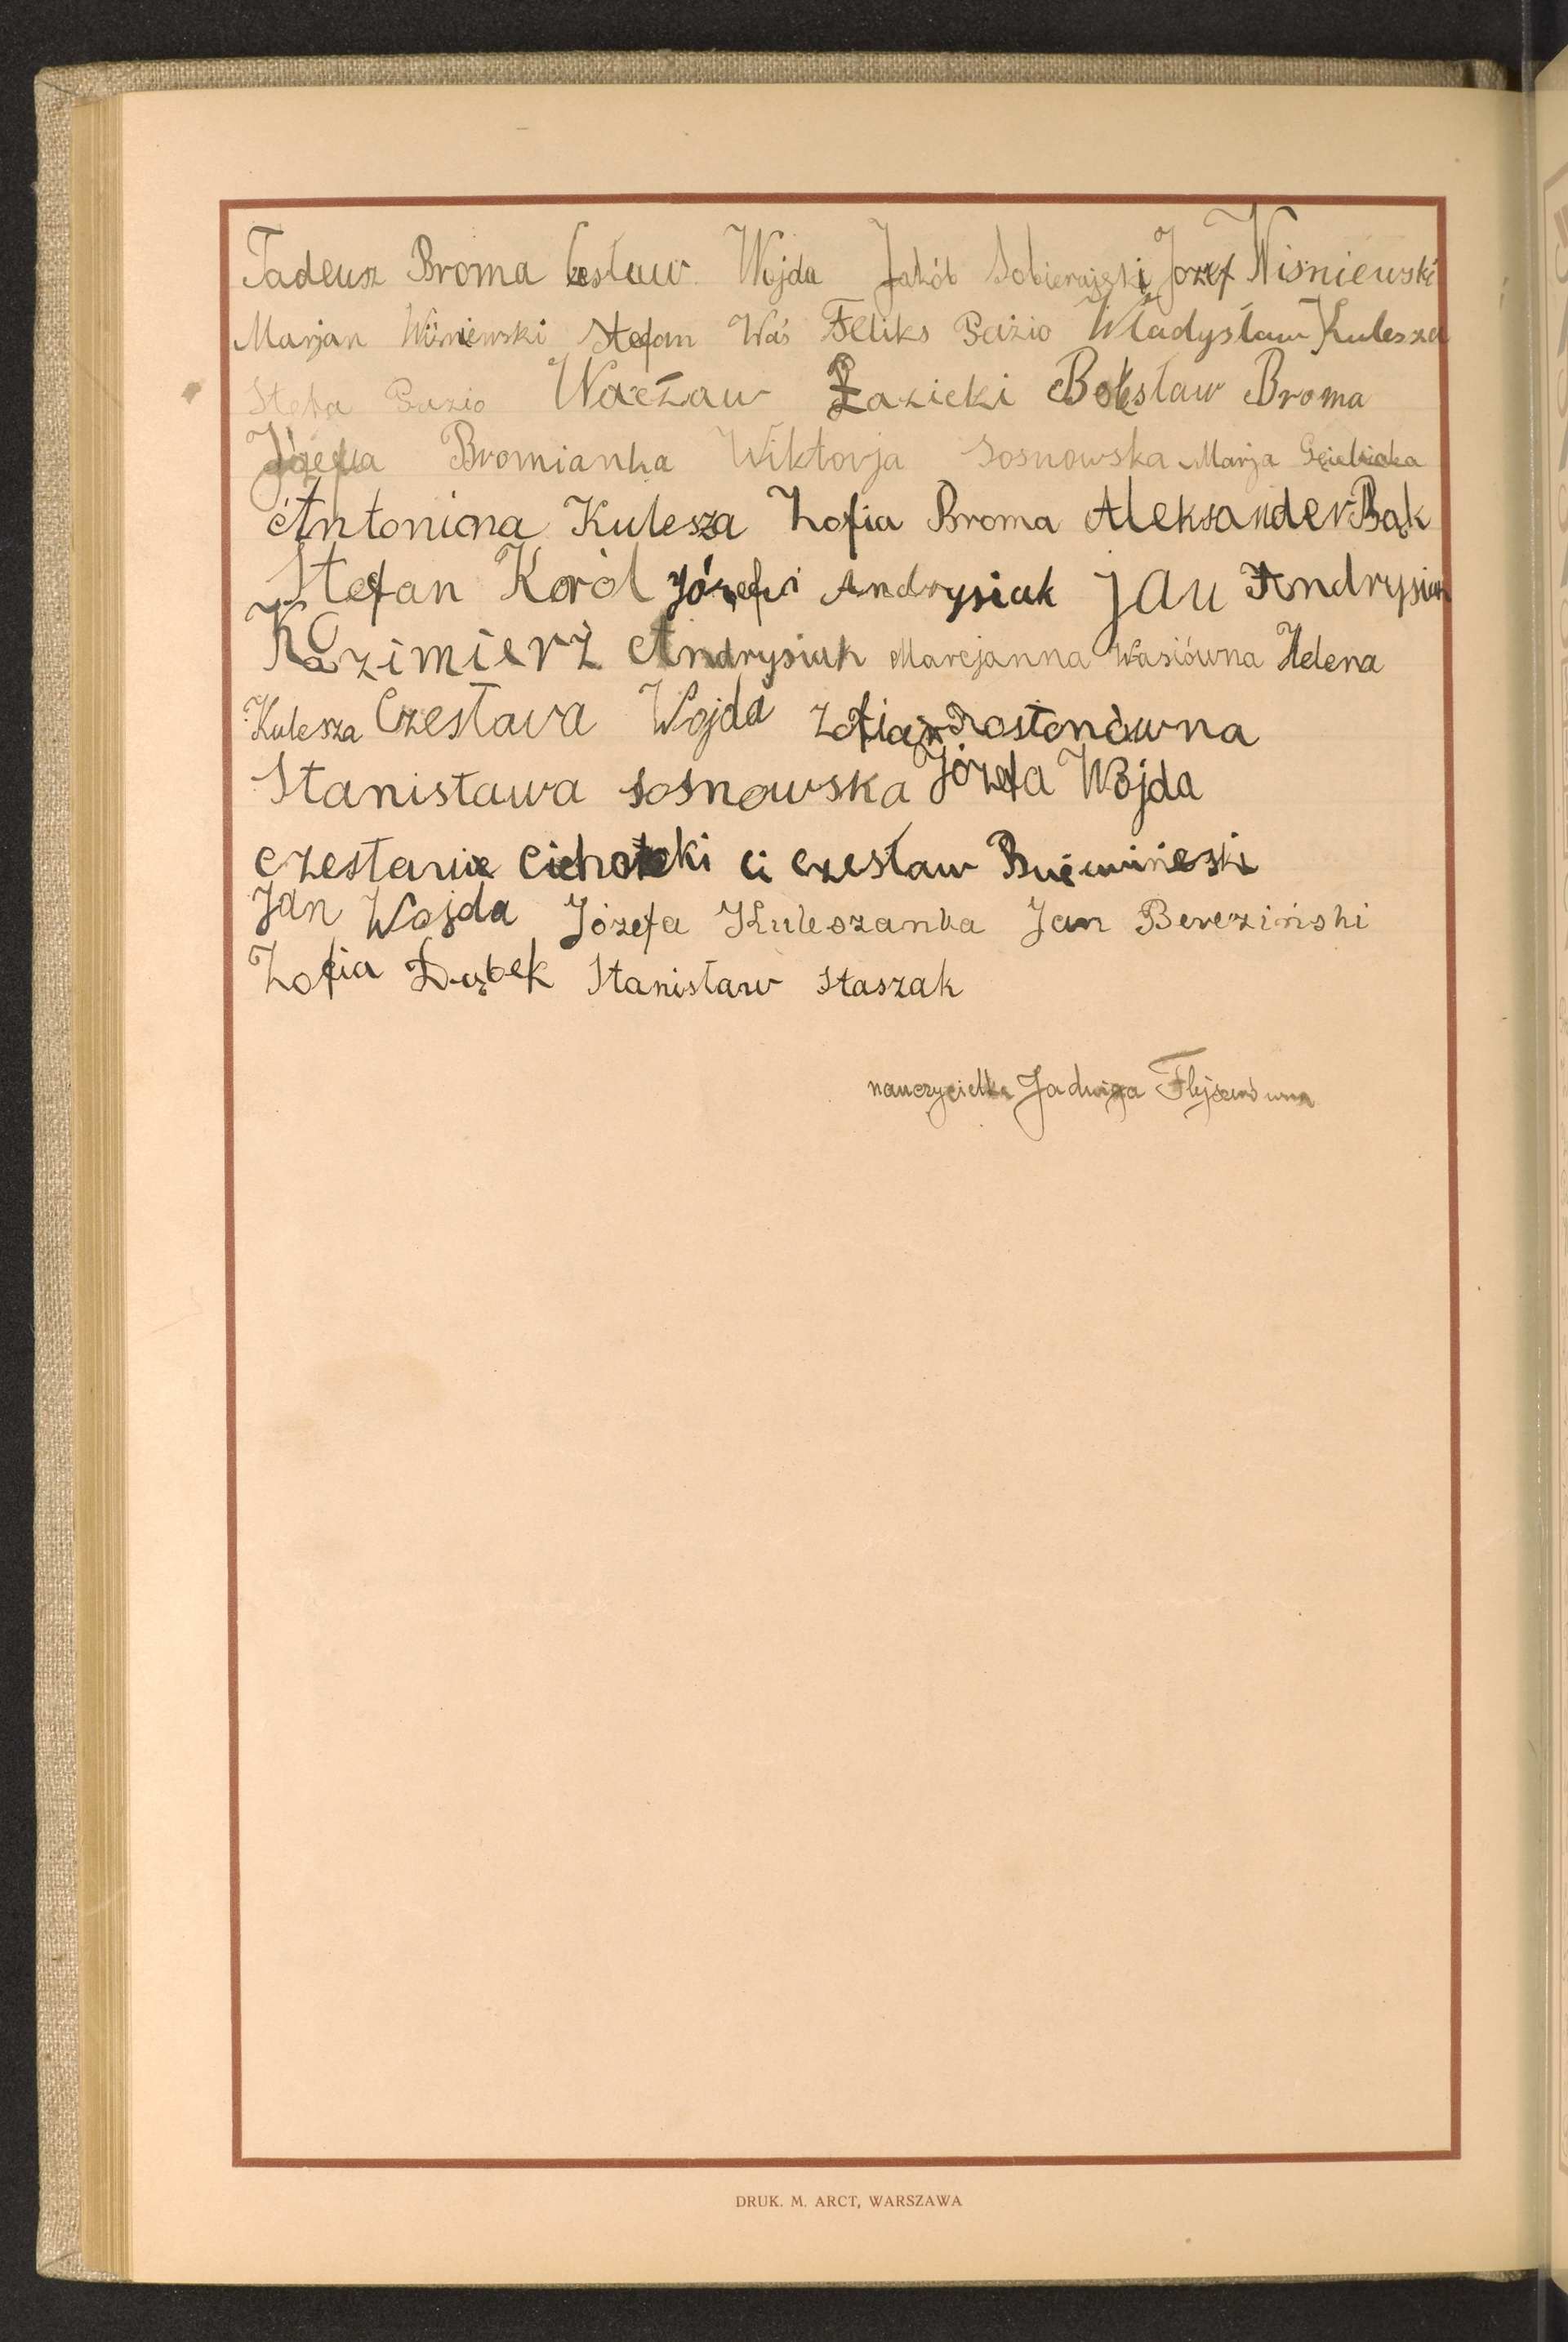 Tadeusz Broma Czesław Wojda Jakób Sobierajski Józef Wiśniewski
Marjan Wiśniewski Stefan Waś Feliks Gazio Władysław Kulesza
Stefa Gazio Wacław Łazicki Bolesław Broma
Józefa Bromianka Wiktorja Sosnowska Marja
Antonina Kulesza Zofia Broma Aleksander Bąk
Stefan Koról Józefa Andrysiak Jan Andrysiak
Kazimierz Andrysiak Marejanna Wasiówna Helena
Kulesza Czesława Wojda Zofia Rostonówna
Stanisława Sosnowska Józefa Wojda
Czesław Cichocki Czesław
Jan Wojda Józefa Kuleszanka Jan Bereziński
Zofia Dąbek Stanisław Staszak
nauczycielka Jadwiga
DRUK. M. ARCT, WARSZAWA